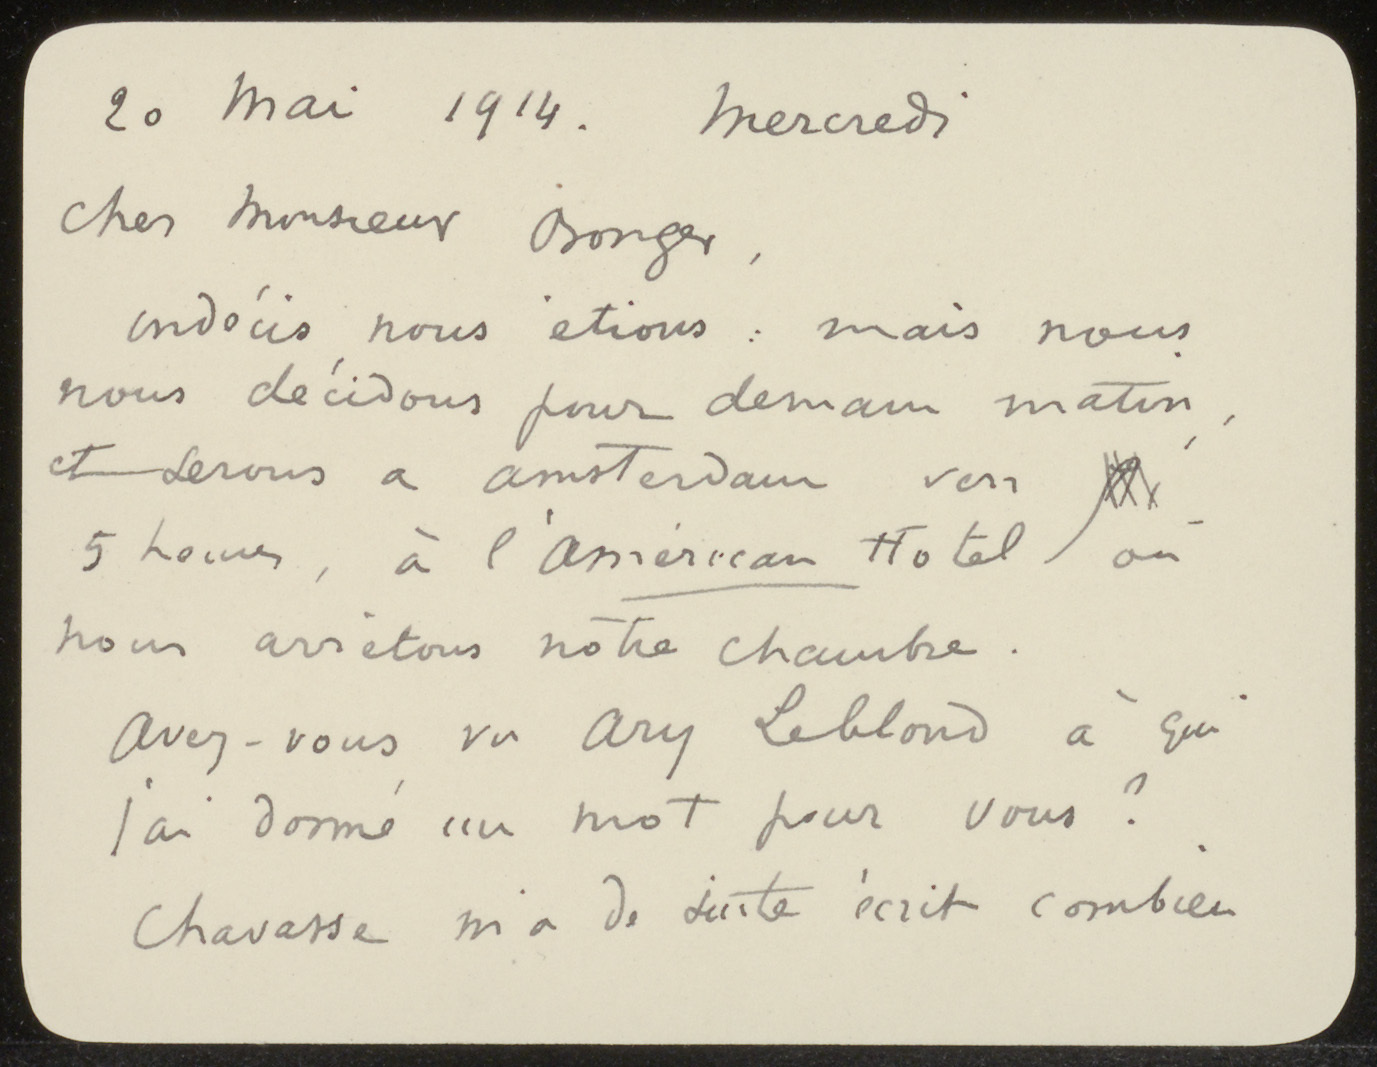 20 Mai 1914. Mercredi
Cher Monsieur Bonger,
indécis nous étions : mais nous
nous décidons pour demain matin,
et serons a amsterdam vers
5 heures, à l'Américan Hotel où
nous arrêtons nôtre chambre.
Avez-vous vu Ary Leblond à qui
j'ai donné un mot pour vous ?
Chavasse m'a de suite écrit combien